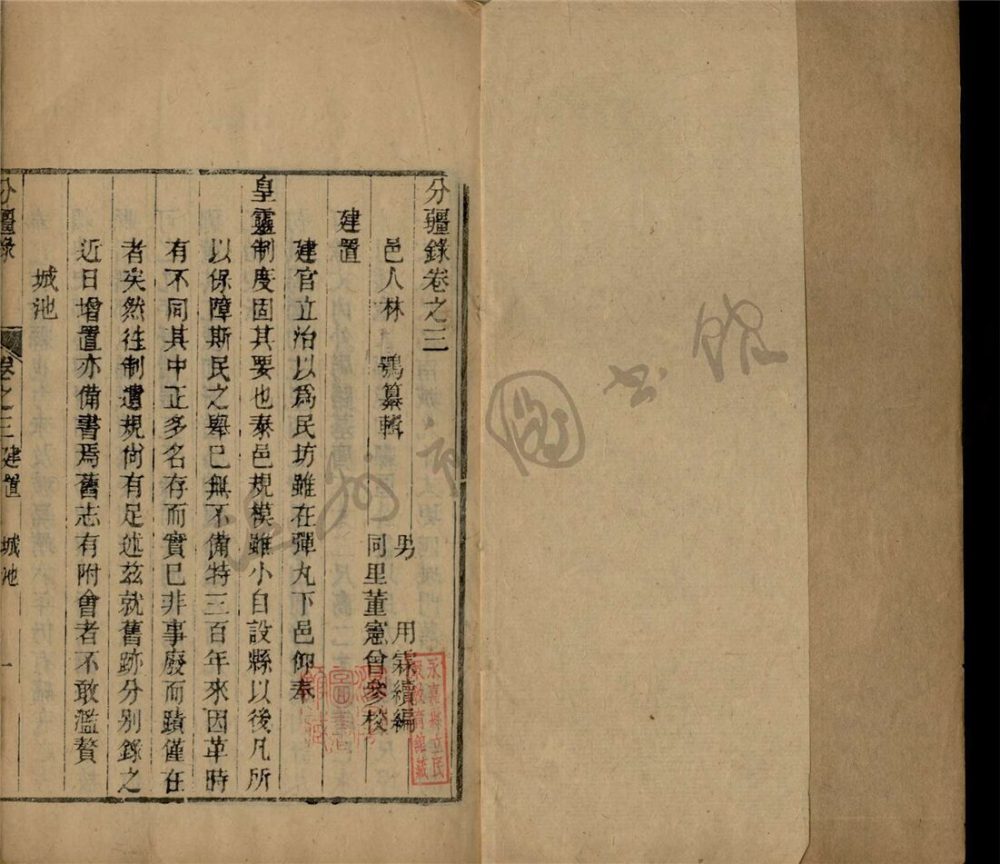 分疆錄卷之三
邑人林　鶚纂輯
男　用霖續編
同里董憲曾參校
建置
建官立治以爲民坊雖在彈丸下邑仰奉
皇靈制度固其要也泰邑規模雖小自設縣以後凡所
以保障斯民之舉已無不備特三百年來因革時
有不同其中正多名存而實已非事廢而蹟僅在
者矣然往制遺規尙有足述茲就舊跡分别錄之
近日增置亦備書焉舊志有附會者不敢濫贅
城池
分疆錄　卷之三建置　城池　一
圖書館